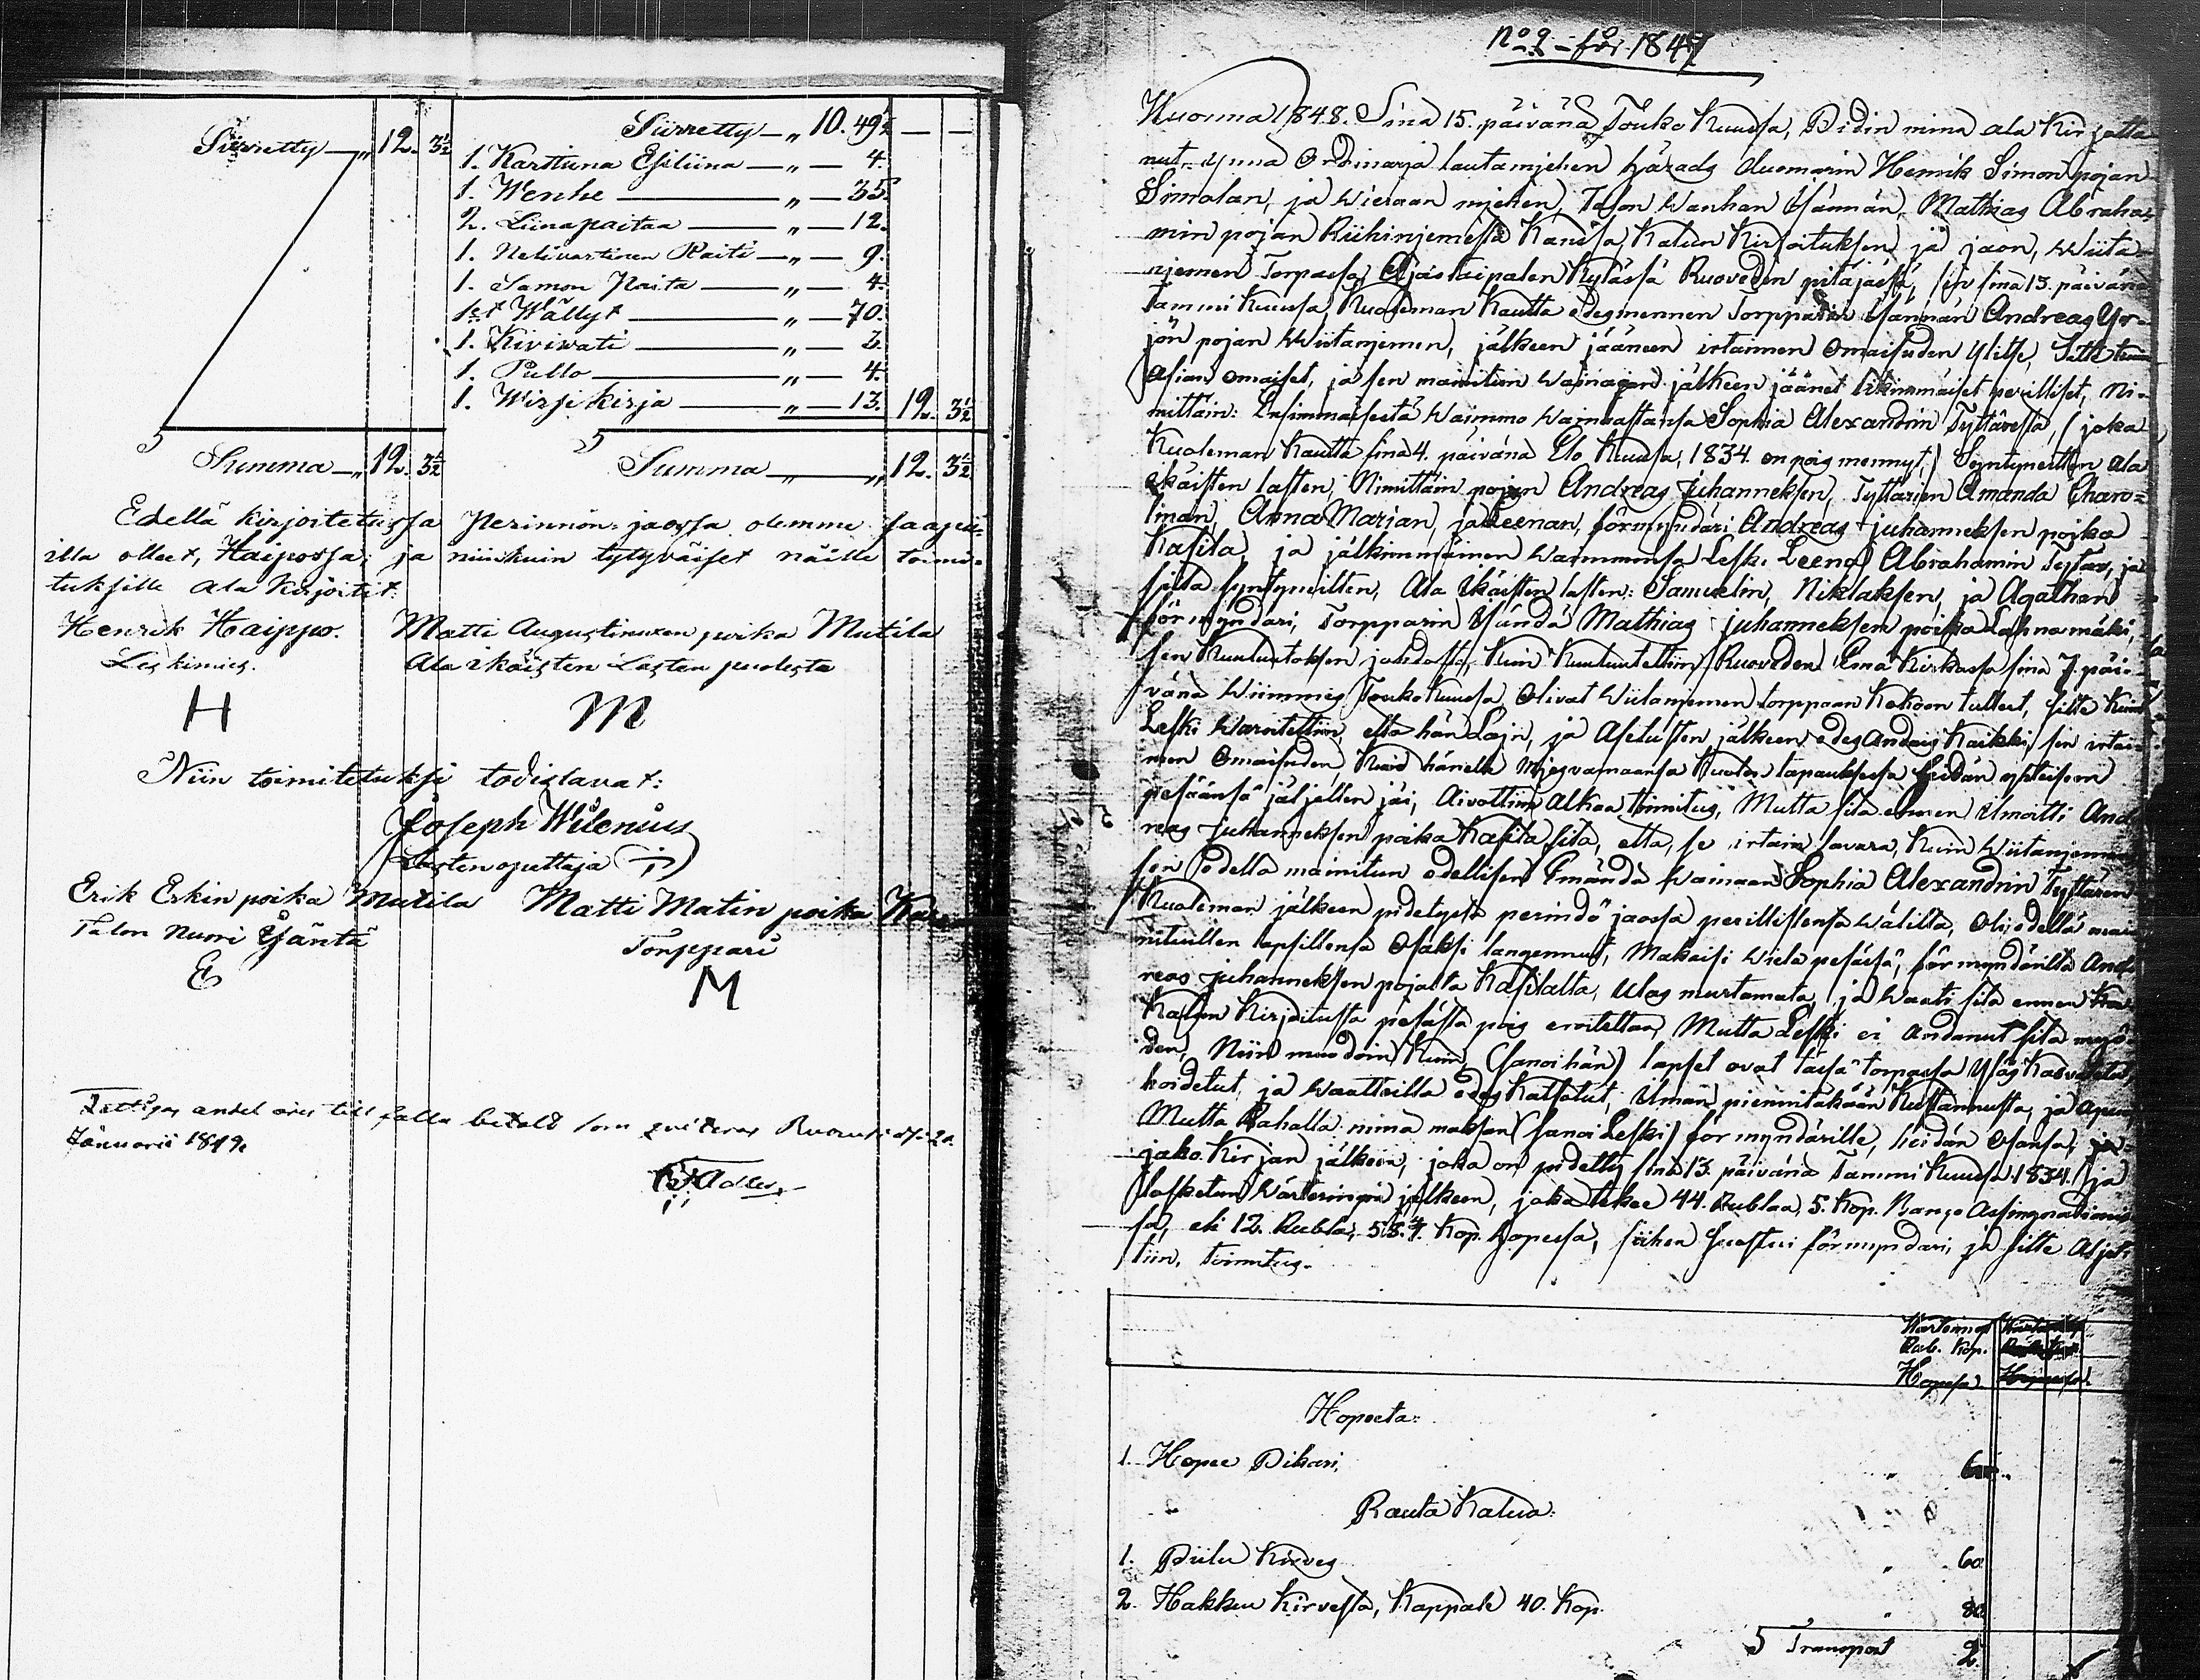 Siirretty — „ 12. 3½
Siirretty — „ 10. 49½ — —
1. Karttuna Esiliina — „ — 4.
1. Wenhe — „ — 35.
2. Liinapaitaa — „ — 12.
1. Nelivartinen Raiti — „ — 9.
1. Samon Paita — „ — 4.
1st Wällyt — „ — 70.
1. Kiviwati — „ — 3.
1. Pullo — „ — 4.
1. Wirsikirja — „ — 13. 12. 3½
Summa — „ 12. 3½
Summa — „ 12. 3½
Edellä kirjoitetussa Perinnön-jaossa olemme saapu-
illa olleet, Haipossa; ja niinkuin tytyväiset näille toimi-
tuksille ala kirjoitit.
Henrik Haippo. Matti Augustinuxen poika Mutila
Leskimies. Ala ikäisten Lasten puolesta
H M
Niin toimitetuksi todistavat:
Joseph Wilenius
Lasten opettaja
Erik Erkin poika Mutila Matti Matin poika
Talon Nuori Isäntä Torppari
E M
Fattigas andel är till falla betald som qviteras Ruovesi d. 20
Januarii 1849.
Adler
No 9 - för 1847
Wuonna 1848. Sinä 15. päivänä Touko Kuussa, Pidin minä ala Kirjotta
nut, ynnä Ordinarja lautamjehen härads duomarin Henrik Simon pojan
Simolan, ja Wieraan mjehen, Talon Wanhan Isännän, Mathias Abraha-
min pojan Riihinjemestä Kanssa, Kalun Kirjoituksen ja jaon, Wiita-
njemen Torpassa, Ajostaipalen Kylässä Ruoveden pitäjässä, sen sinä 13. päivänä
Tammi Kuussa, Kuoleman Kautta edesmennen Torpparin Isännän Andreas Yr-
jön pojan Wiitanjemen, jälkeen jääneen irtaimen Omaisuden ylitse,
asian omaiset, ja sen mainitun Wainajan jälkeen jäänet likimmäiset perilliset, Ni-
mittäin: Ensimmäisestä Waimmo Wainaastansa Sophia Alexandrin Tyttärestä, (joka
Kuoleman Kautta sinä 4. päivänä Elo Kuussa, 1834. on pois mennyt,) Syntyneitten ala
ikäisten lasten, Nimittäin pojan Andreas Juhanneksen, Tyttärien Amanda Charo-
linan, Anna Marian, ja Leenan, förmyndäri Andreas Juhanneksen poika
Kasila, ja jälkimmäinen Waimmonsa Leski Leena Abrahamin Tytär, ja
siitä syntyneitten, Ala ikäisten lasten: Samuelin, Niklaksen, ja Agathan
förmyndäri, Torpparin Isändä Mathias Juhanneksen poika Lahnamäki,
sen Kuulutoksen johdosta, Kuin Kuuluutettiin Ruoveden Emä Kirkossa sinä 7. päi-
vänä Wiimmeis Touko Kuussa, Olivat Wiitanjemen torppaan Kokoon tulleet, sitte Kuin
Leski Waroitettiin, että hän Lajn, ja Asetusten jälkeen edesandais Kaikki, sen irtai-
men Omaisuden, Kuin hänellä Mjesvainaansa Kuolin tapauksessa heidän yhteiseen
pesäänsä jäljellen jäi, Aivottiin alkaa toimitus, Mutta sitä ennen ilmoitti And-
reas Juhanneksen poika Kasila, sitä, että, se irtain tavara, Kuin Wiitanjemen
sen edellä mainitun edellisen Emändä Wainaan Sophia Alexandrin Tyttären
Kuoleman jälkeen pidetystä perindö jaossa perillistensä Wälillä, Oli edellä mai-
nituillen lapsillensa Osaksi langennut, Makaisi Wielä pesässä, förmyndäriltä And-
reas Juhanneksen pojalta Kasilalta, Ulos murtamata, ja Waati sitä ennen
Kalun Kirjoitusta pesästä pois eroitettaa, Mutta Leski ei andanut sitä myö-
den, Niin muodoin Kuin, (sanoi hän) lapset ovat tässä torpassa Ylös Kasvatetut,
hoidetut, ja Waatteilla edes Kattotut, Ilman pienintäkään Kustannusta, ja apua,
Mutta Rahalla minä maksan (sanoi Leski) förmyndärille, heidän Osansa,
jako Kirjan jälkeen, joka on pidetty sinä 13. päivänä Tammi Kuussa 1834. ja
lasketun Wärteringin jälkeen, joka tekee 44. Rublaa, 5. Kop. Banco Assignationis-
sa, eli 12. Rubla, 58 4/7. Kop. Hopessa, siihen suostui förmyndäri, ja sitte Aljet-
tiin, toimitus.
Wärteringi
Rub. Kop.
Hopessa.
Hopeeta:
1. Hopee Pikari, „ 60.
Rauta Kalua:
1. Piilu Kirves „ 60.
2. Hakkuu Kirvestä, Kappale 40. Kop. „ 80.
Transport 2.